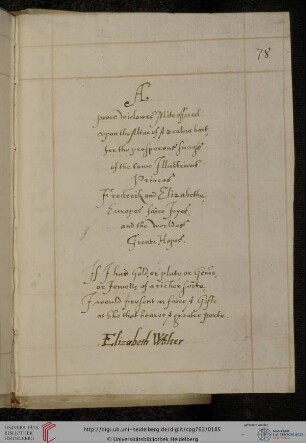 78
A
poore widowes Mite offered
upon the Altar of A zealous hart
for the prosperous
of the towe Illustrious
Princes
Frederick and Elizabethe
Europes faire Joyes
and the worldes
Greate Hopes.
If I had Gold, or plate or Gems
or Jewells of a richer sorte
I would present as faire A Gifte
as hee that beares A greater porte
Elizabeth
UNIVERSITÄTS-
BIBLIOTHEK
HEIDELBERG
http://digi.ub.uni-heidelberg.de/diglit/cpg762/0185
© Universitätsbibliothek Heidelberg